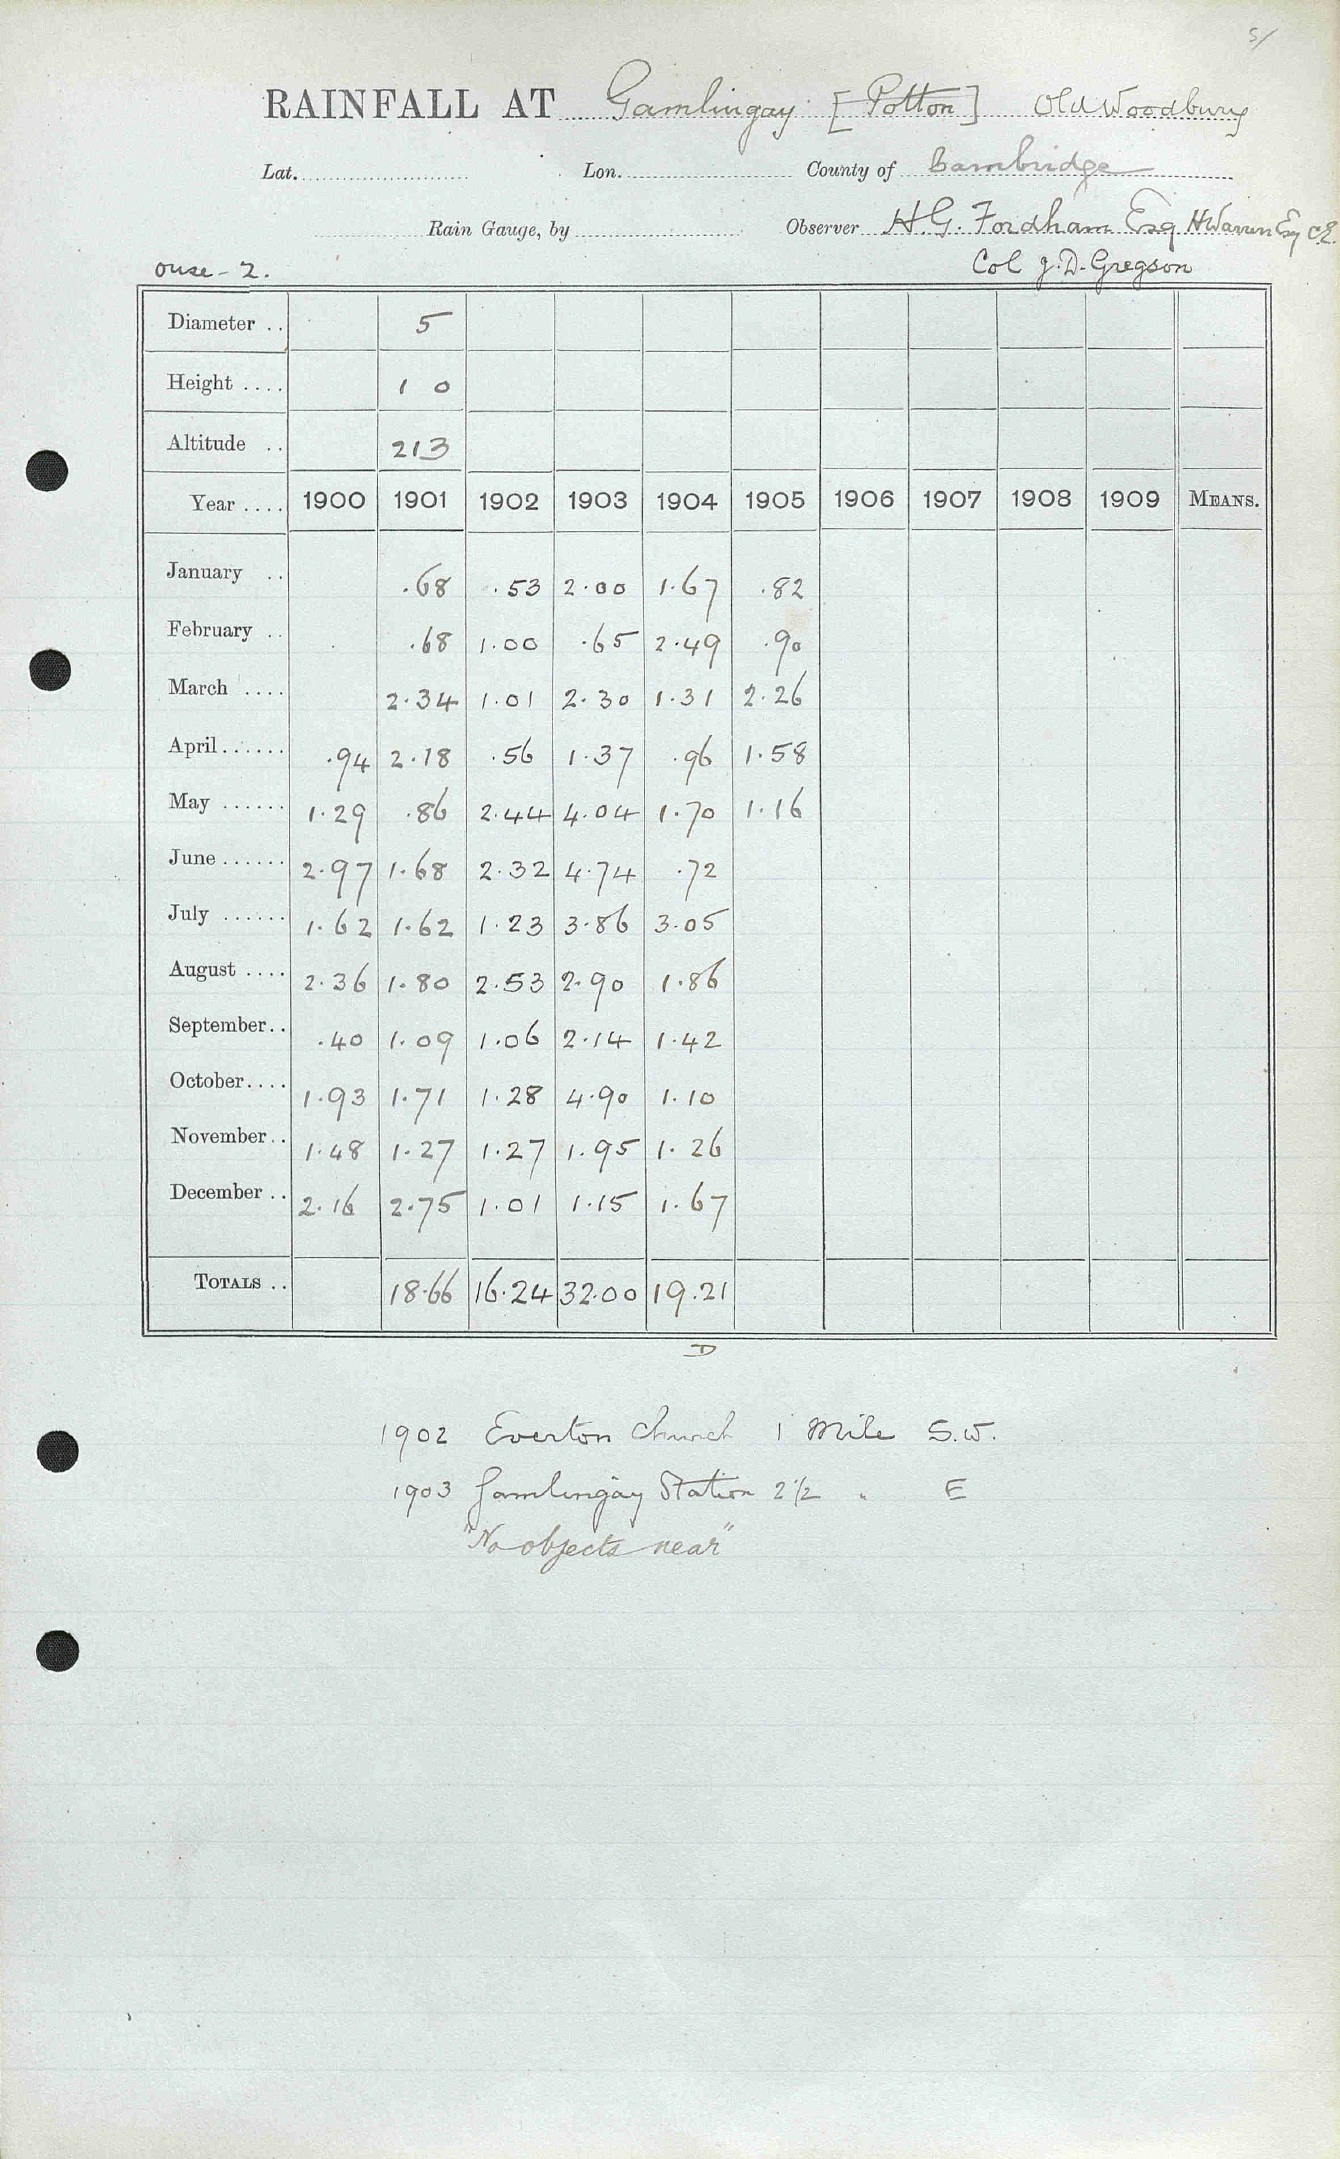 5/
RAINFALL AT Gamlingay [Potton] Old Woodbury
Lat. Lon. County of Cambridge
Rain Gauge, by Observer H. G. Fordham Esq H Warren Esq C.E.
Ouse - 2. Col J. D. Gregson
Diameter .. 5
Height .... 1 0
Altitude .. 213
Year .... 1900 1901 1902 1903 1904 1905 1906 1907 1908 1909 MEANS.
January .. .68 .53 2.00 1.67 .82
February .. .68 1.00 .65 2.49 .90
March .... 2.34 1.01 2.30 1.31 2.26
April...... .94 2.18 .56 1.37 .96 1.58
May ...... 1.29 .86 2.44 4.04 1.70 1.16
June ...... 2.97 1.68 2.32 4.74 .72
July ...... 1.62 1.62 1.23 3.86 3.05
August .... 2.36 1.80 2.53 2.90 1.86
September.. .40 1.09 1.06 2.14 1.42
October.... 1.93 1.71 1.28 4.90 1.10
November.. 1.48 1.27 1.27 1.95 1.26
December .. 2.16 2.75 1.01 1.15 1.67
TOTALS .. 18.66 16.24 32.00 19.21
D
1902 Everton Church 1 Mile S.W.
1903 Gamlingay Station 2 1/2 " E
"No objects near"